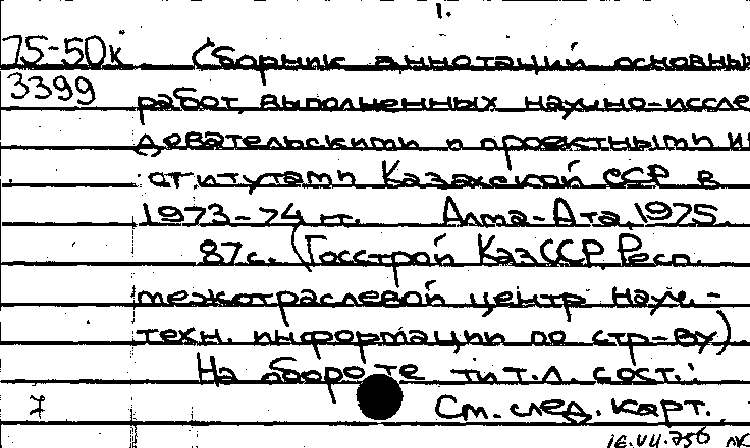 1.
75-50к Сборник аннотаций основны
3399
работ, выполненных научно-иссле
довательскими и проектными ин
ститутами Казахской ССР в
1973-74 гг. Алма-Ата, 1975.
87с. (Госстрой КазССР. Респ.
межотраслевой центр науч.-
техн. информации по стр-ву).
На обороте тит.л. сост.:
См. след. карт.